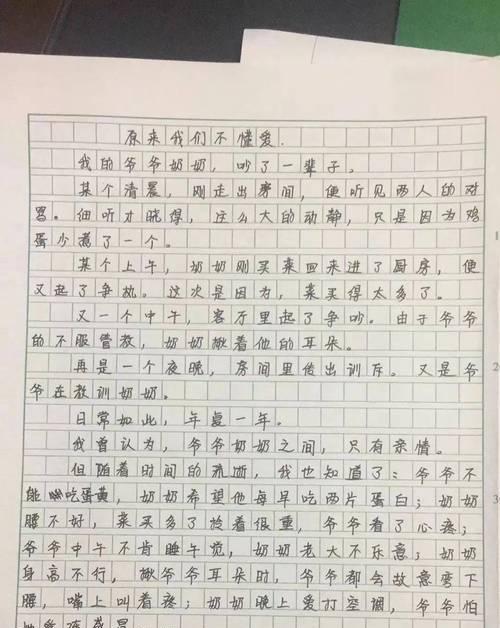 原来我们不懂爱.
我的爷爷奶奶，吵了一辈子。
某个清晨，刚走出房间，便听见两人的对
骂。细听才晓得，这么大的动静，只是因为鸡
蛋少煮了一个。
某个上午，奶奶刚买菜回来进了厨房，便
又起了争执。这次是因为，菜买得太多了。
又一个中午，客厅里起了争吵。由于爷爷
的不服管教，奶奶揪着他的耳朵。
再是一个夜晚，房间里传出训斥。又是爷
爷在教训奶奶。
日常如此，年复一年。
我曾认为，爷爷奶奶之间，只有亲情。
但随着时间的流逝，我也知道了：爷爷不
能吃蛋黄，奶奶希望他每早吃两片蛋白；奶奶
腰不好，菜买多了拎着很重，爷爷看了心疼；
爷爷中午不肯睡午觉，奶奶老大不乐意；奶奶
身高不行，揪爷爷耳朵时，爷爷都会故意弯下
腰，嘴上叫着疼；奶奶晚上爱打空调，爷爷怕